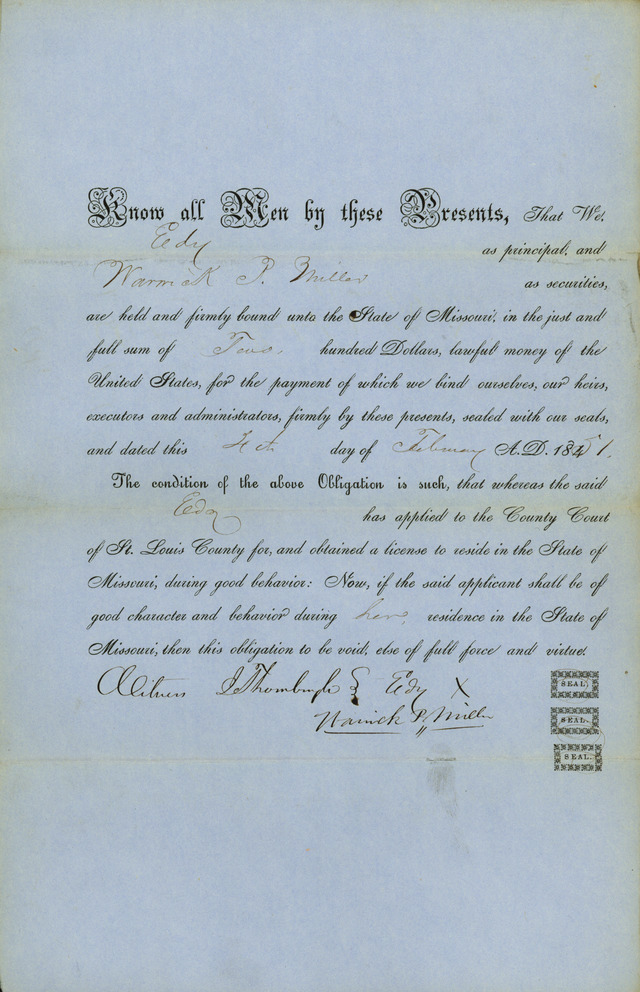 Know all Men by these Presents, That We,
Edy as principal, and
Warwick P. Miller as securities,
are held and firmly bound unto the State of Missouri, in the just and
full sum of hundred Dollars, lawful money of the
United States, for the payment of which we bind ourselves, our heirs,
executors and administrators, firmly by these presents, sealed with our seals,
and dated this day of February A. D. 1851.
The condition of the above Obligation is such, that whereas the said
Edy has applied to the County Court
of St. Louis County for, and obtained a license to reside in the State of
Missouri, during good behavior: Now, if the said applicant shall be of
good character and behavior during her residence in the State of
Missouri, then this obligation to be void, else of full force and virtue.
Witness J Thornburgh Edy X SEAL.
Warwick P. Miller SEAL.
SEAL.